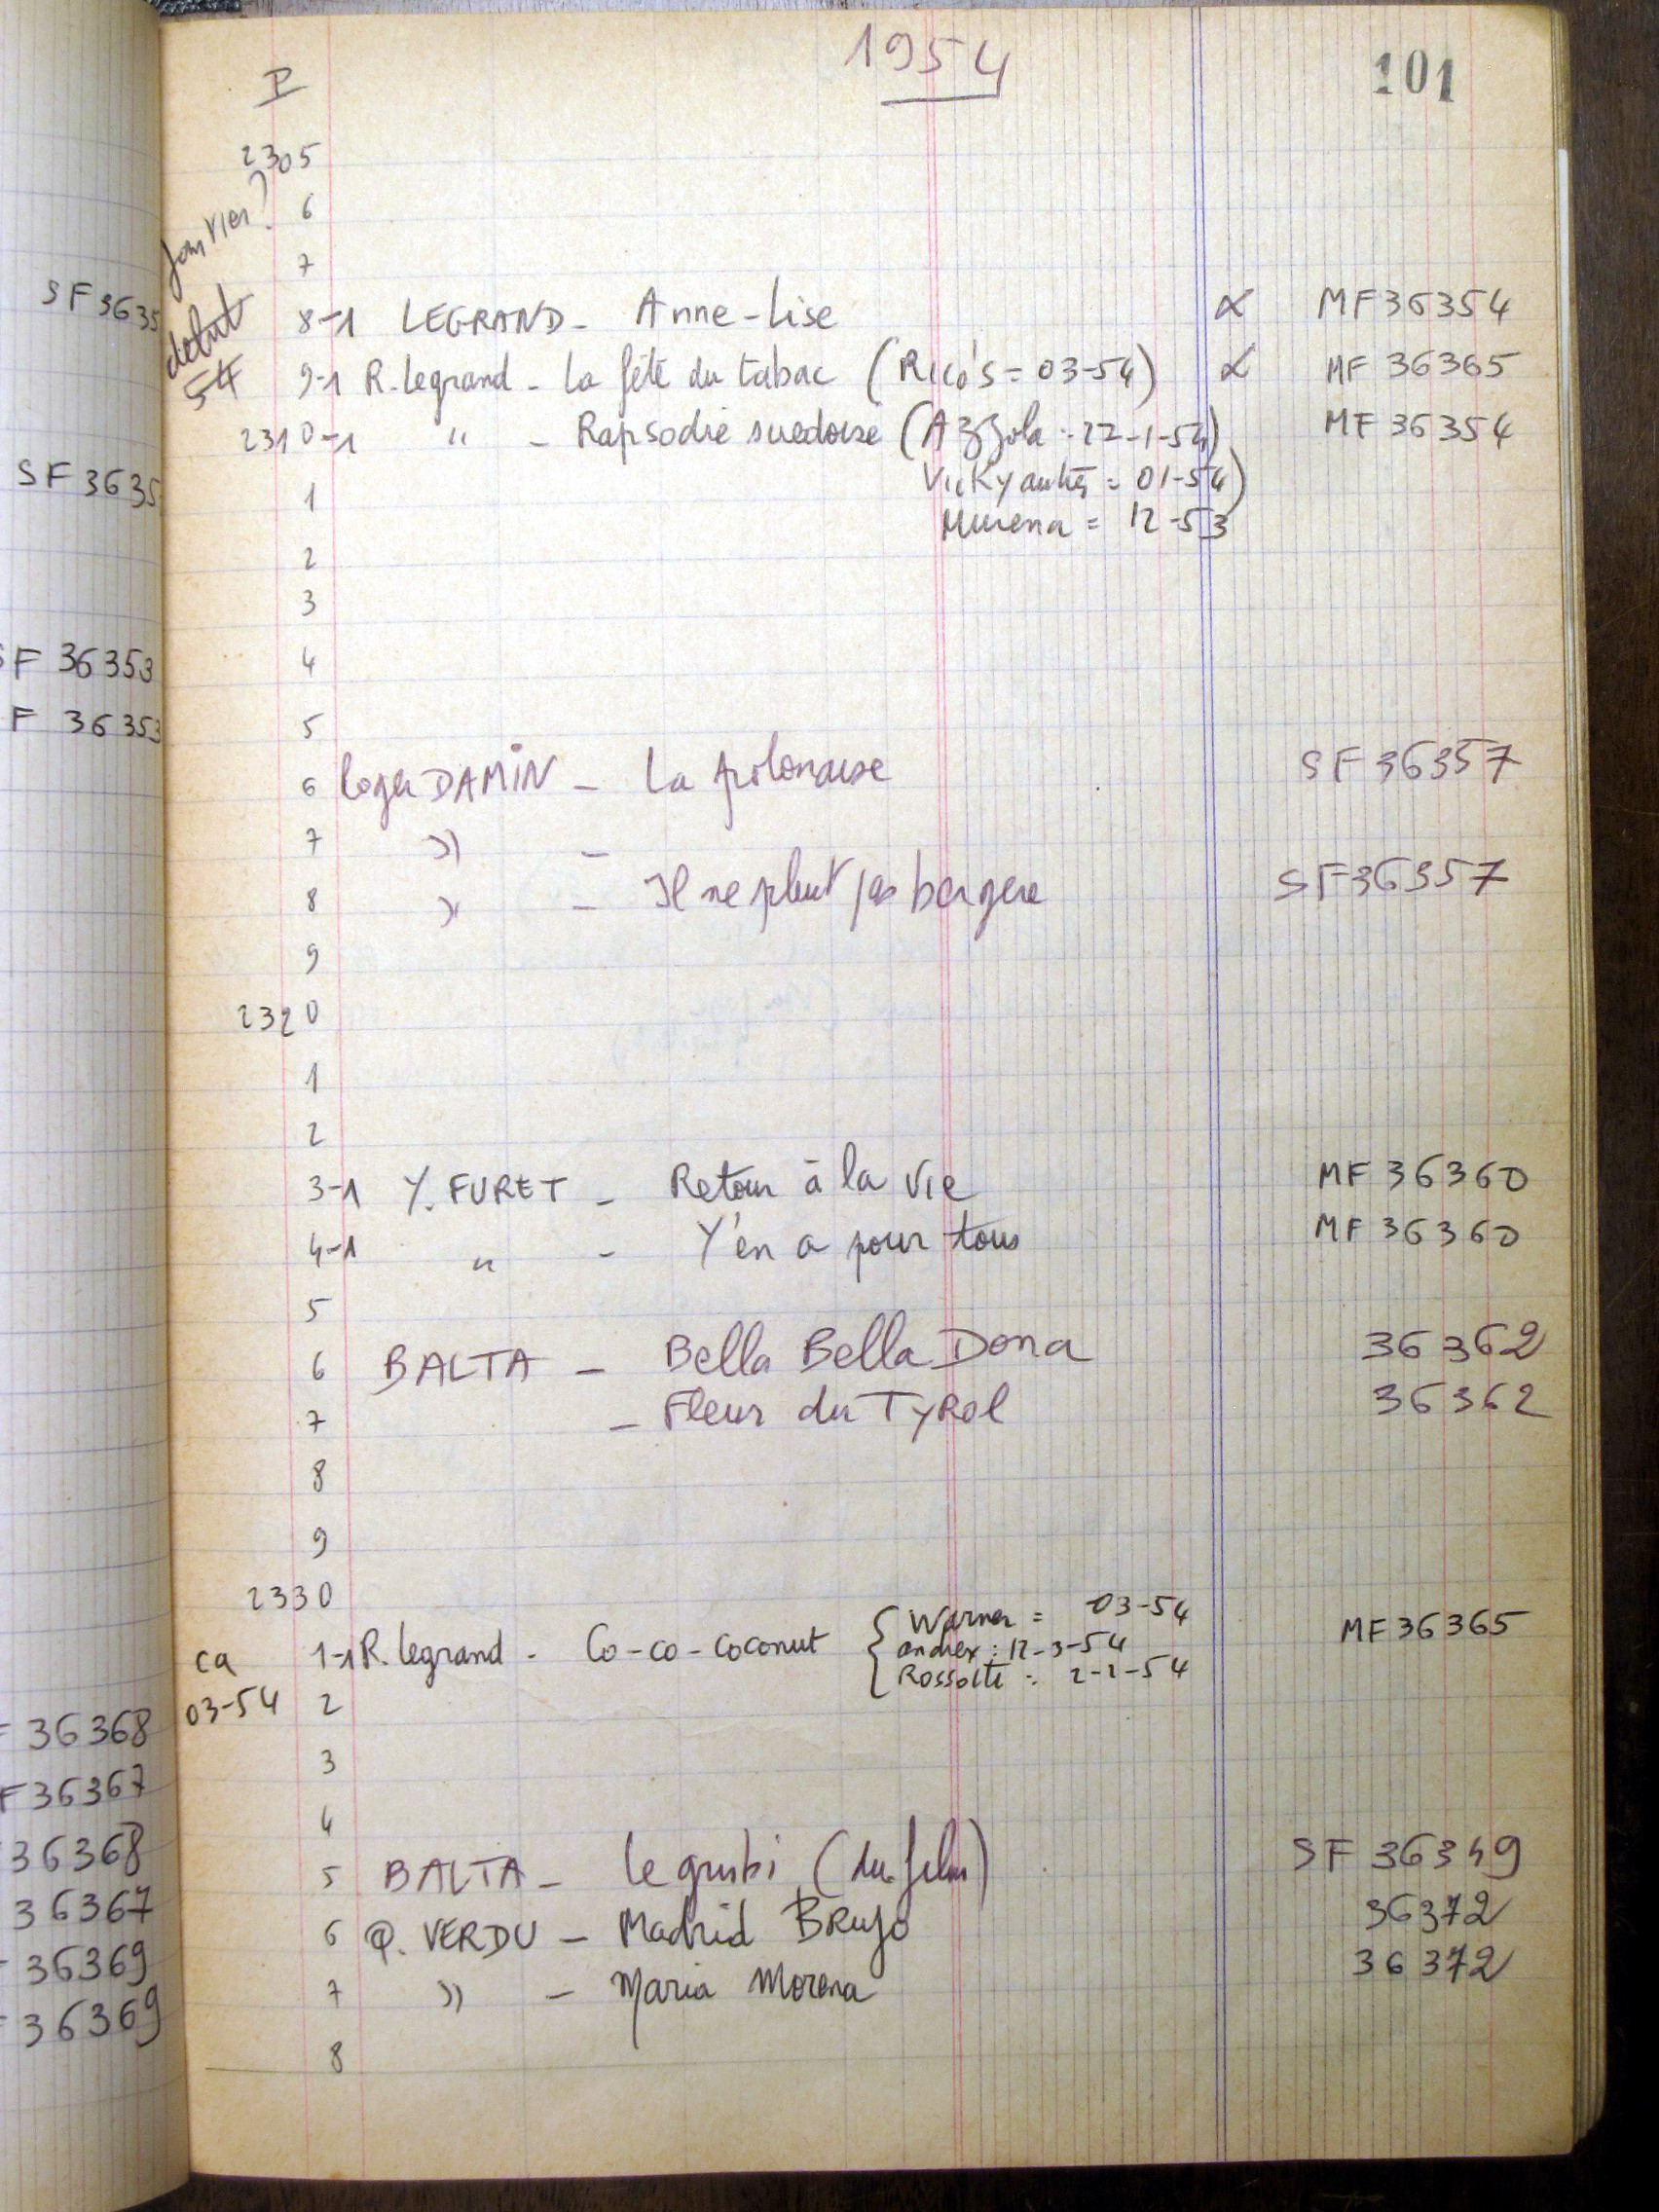 1954
101
P
2305
6
7
janvier?
début
54
8-1 LEGRAND - Anne-Lise α MF36354
9-1 R. Legrand - La fête du tabac (Rico's = 03-54) α MF 36365
2310-1 " - Rapsodie suedoise (Azzola : 22-1-54) MF 36354
Vicky autres = 01-54)
1
Murena = 12-53
2
3
4
5
6 Roger DAMIN - La polonaise SF 36357
7 " -
8 " - Il ne pleut pas bergere SF36357
9
2320
1
2
3-1 Y. FURET - Retour à la vie MF 36360
4-1 " - Y'en a pour tous MF 36360
5
6 BALTA - Bella Bella Dona 36362
7 - Fleur du TyRol 36362
8
9
2330
Warner = 03-54
ca 1-1 R. Legrand - Co-co-coconut { andrex : 12-3-54 MF36365
Rossotti : 2-2-54
03-54 2
3
4
5 BALTA - Le grisbi (du film) SF 36349
6 P. VERDU - Madrid Brujo 36372
7 " - Maria Morena 36372
8
SF 3635
SF 3635
SF 36353
F 36353
F 36368
F 36367
36368
36367
36369
36369